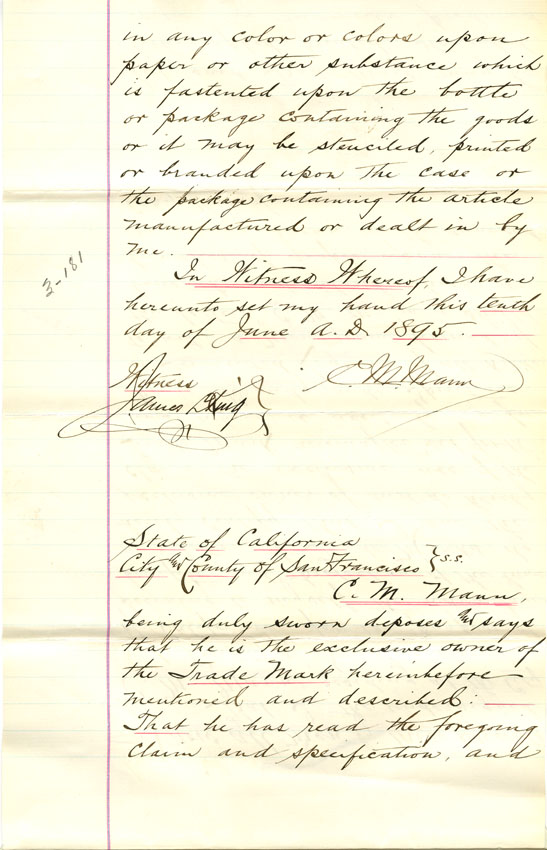 in any color or colors upon
paper or other substance which
is fastented upon the bottle
or package containing the goods
or it may be stenciled, printed
or branded upon the case or
the package containing the article
manufactured or dealt in by
me.
3-181
In Witness Whereof, I have
hereunto set my hand this tenth
day of June A.D. 1895.
Witness
C. M. Mann
James L. King
State of California
City and County of San Francisco } s.s.
C. M. Mann,
being duly sworn deposes and says
that he is the exclusive owner of
the Trade Mark hereinbefore
mentioned and described:
That he has read the foregoing
claim and specification, and